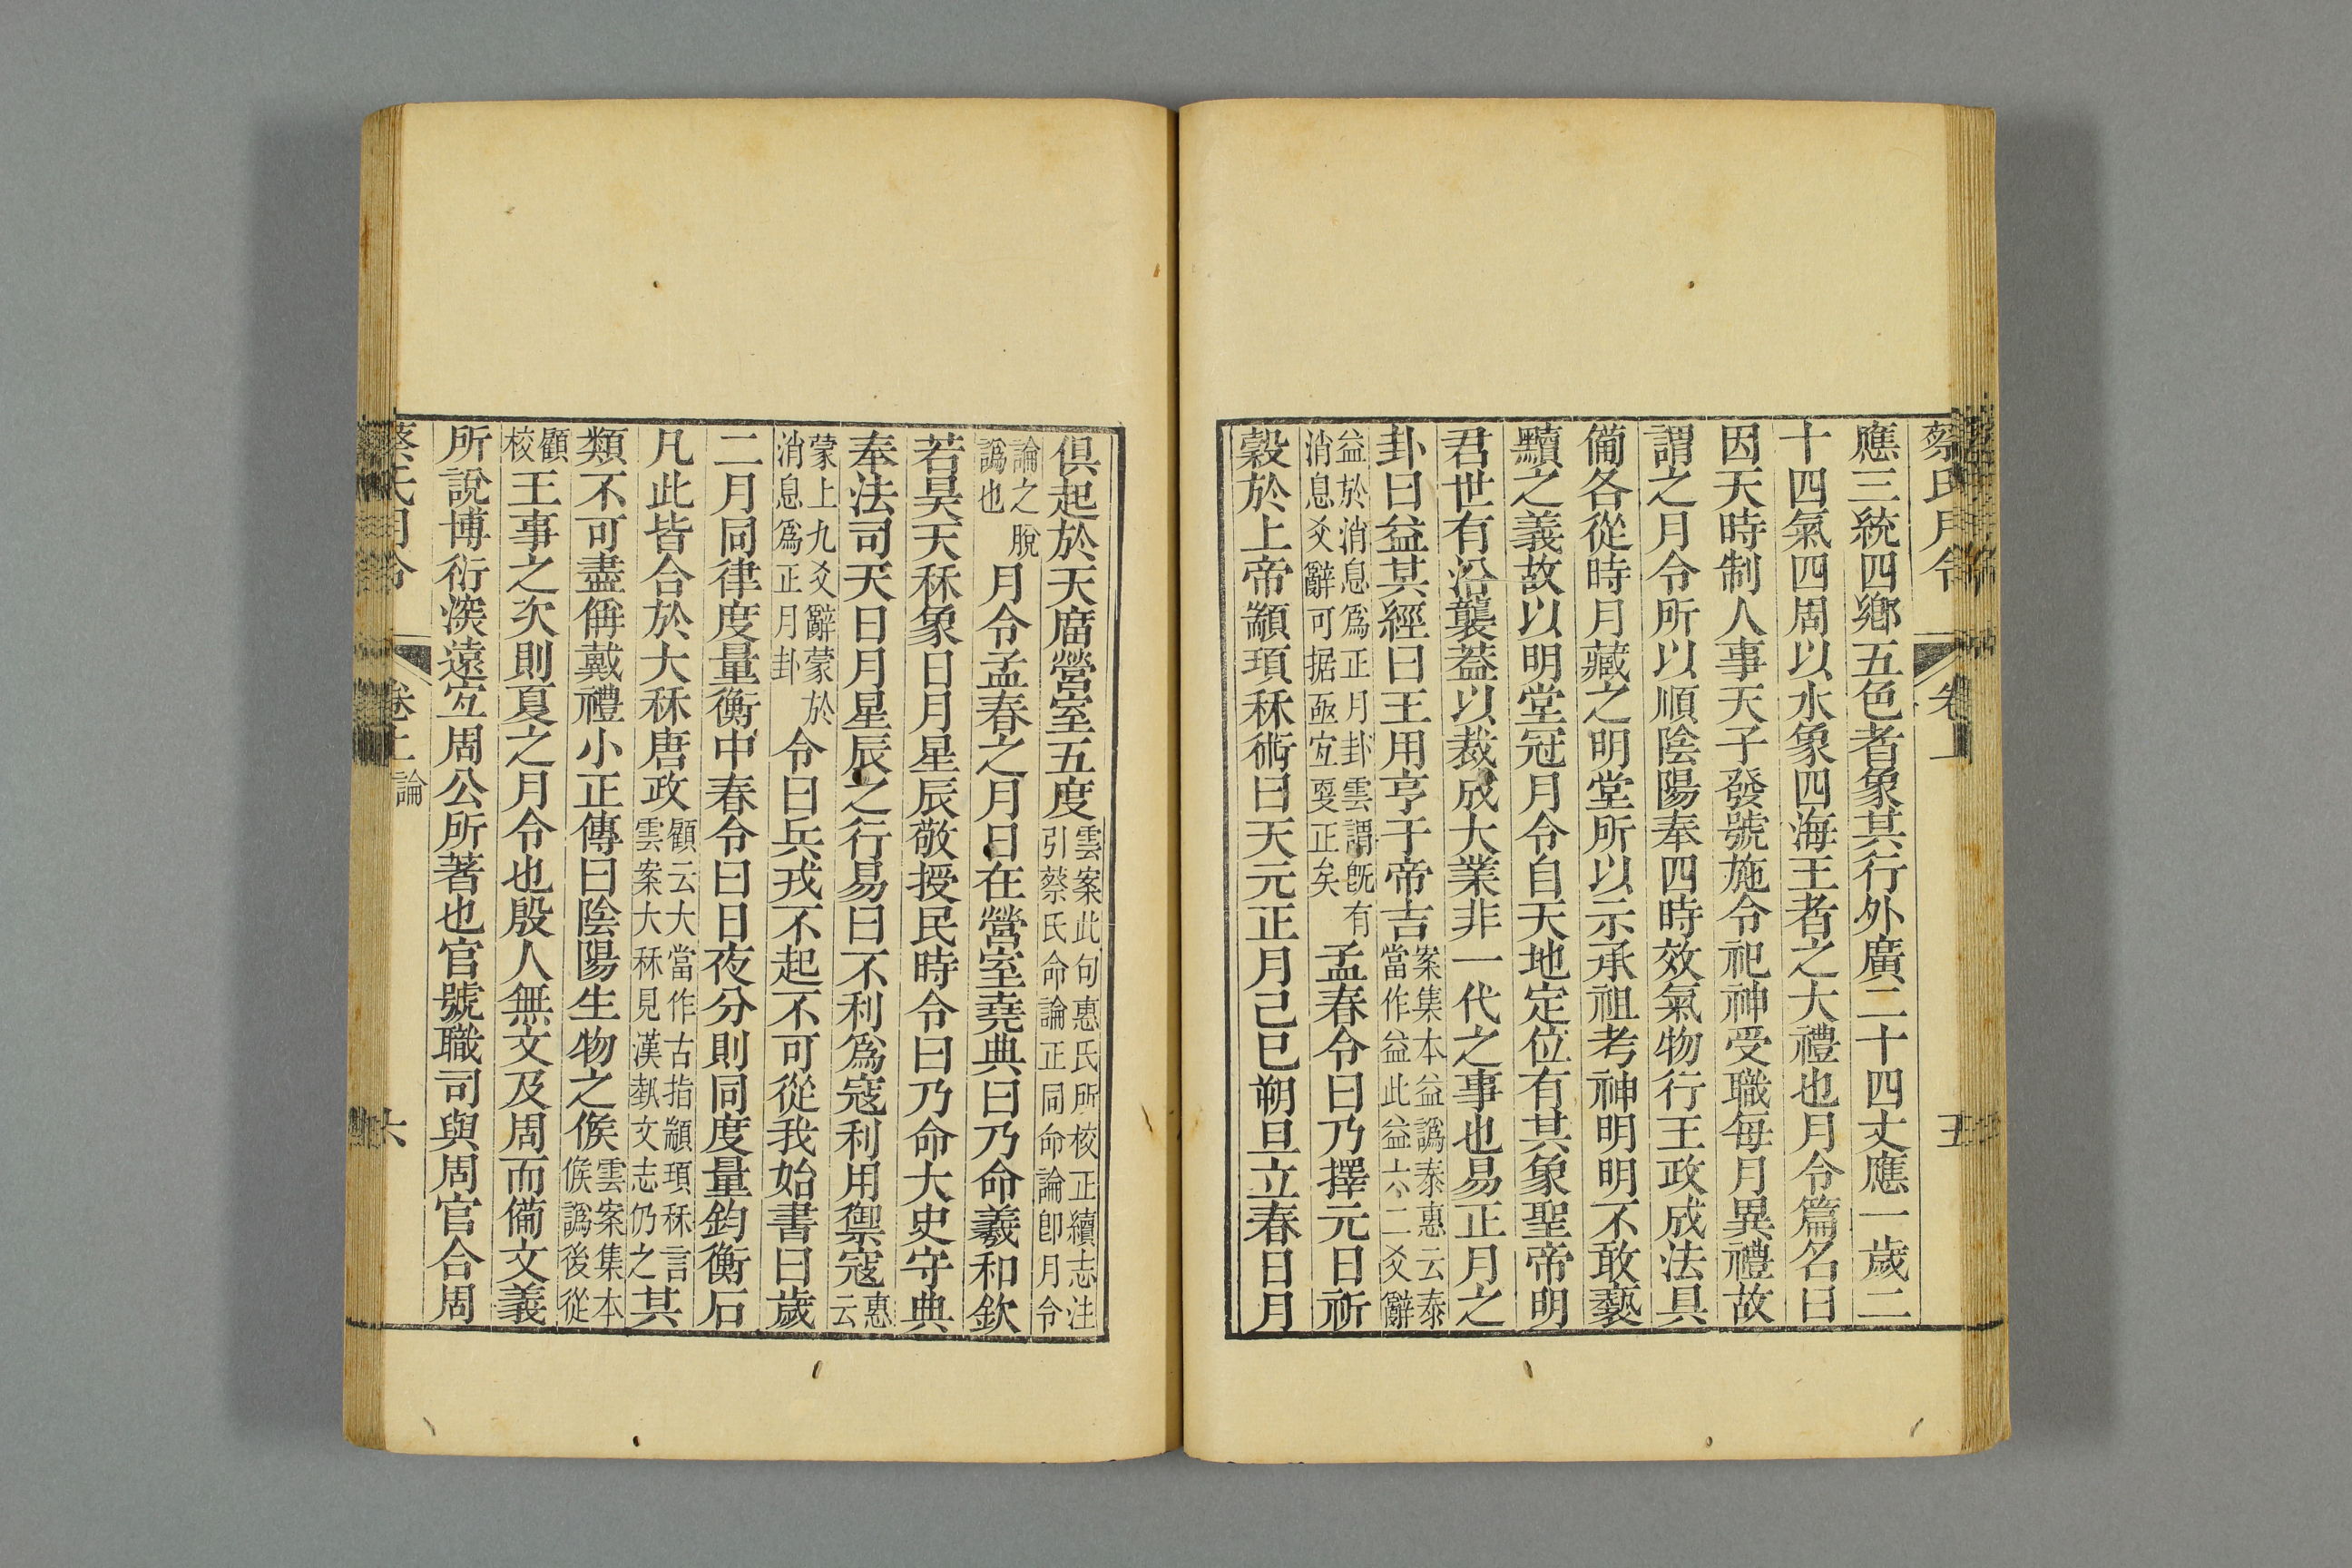 蔡氏月令 卷上 五
應三統四鄉五色者象其行外廣二十四丈應一歲二
十四氣四周以水象四海王者之大禮也月令篇名曰
因天時制人事天子發號施令祀神受職每月異禮故
謂之月令所以順陰陽奉四時效氣物行王政成法具
備各從時月藏之明堂所以示承祖考神明明不敢褻
黷之義故以明堂冠月令自天地定位有其象聖帝明
君世有沿襲葢以裁成大業非一代之事也易正月之
卦曰益其經曰王用亨于帝吉案集本益譌泰惠云泰當作益此益六二爻辭
益於消息爲正月卦雲謂旣有消息爻辭可据亟宐㪅正矣孟春令曰乃擇元日祈
穀於上帝顓頊秝術曰天元正月己巳朔旦立春日月
俱起於天庿營室五度雲案此句惠氏所校正續志注引蔡氏命論正同命論卽月令
論之脫譌也月令孟春之月日在營室堯典曰乃命羲和欽
若昊天秝象日月星辰敬授民時令曰乃命大史守典
奉法司天日月星辰之行易曰不利爲寇利用禦寇惠云
蒙上九爻辭蒙於消息爲正月卦令曰兵戎不起不可從我始書曰歲
二月同律度量衡中春令曰日夜分則同度量鈞衡石
凡此皆合於大秝唐政顧云大當作古指顓頊秝言雲案大秝見漢埶文志仍之其
類不可盡偁戴禮小正傳曰陰陽生物之候雲案集本候譌後從
顧校王事之次則夏之月令也殷人無文及周而備文義
所說博衍深遠宐周公所著也官號職司與周官合周
蔡氏月令 卷上論 六